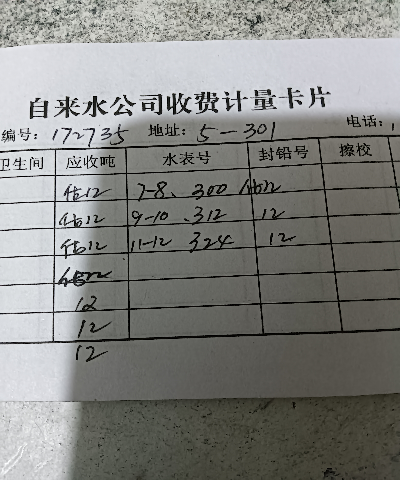 自来水公司收费计量卡片
编号: 172735 地址: 5-301 电话:
卫生间 应收吨 水表号 封铅号 擦校
估12 7-8、300 估12
估12 9-10、312 12
估12 11-12 324 12
12
12
12